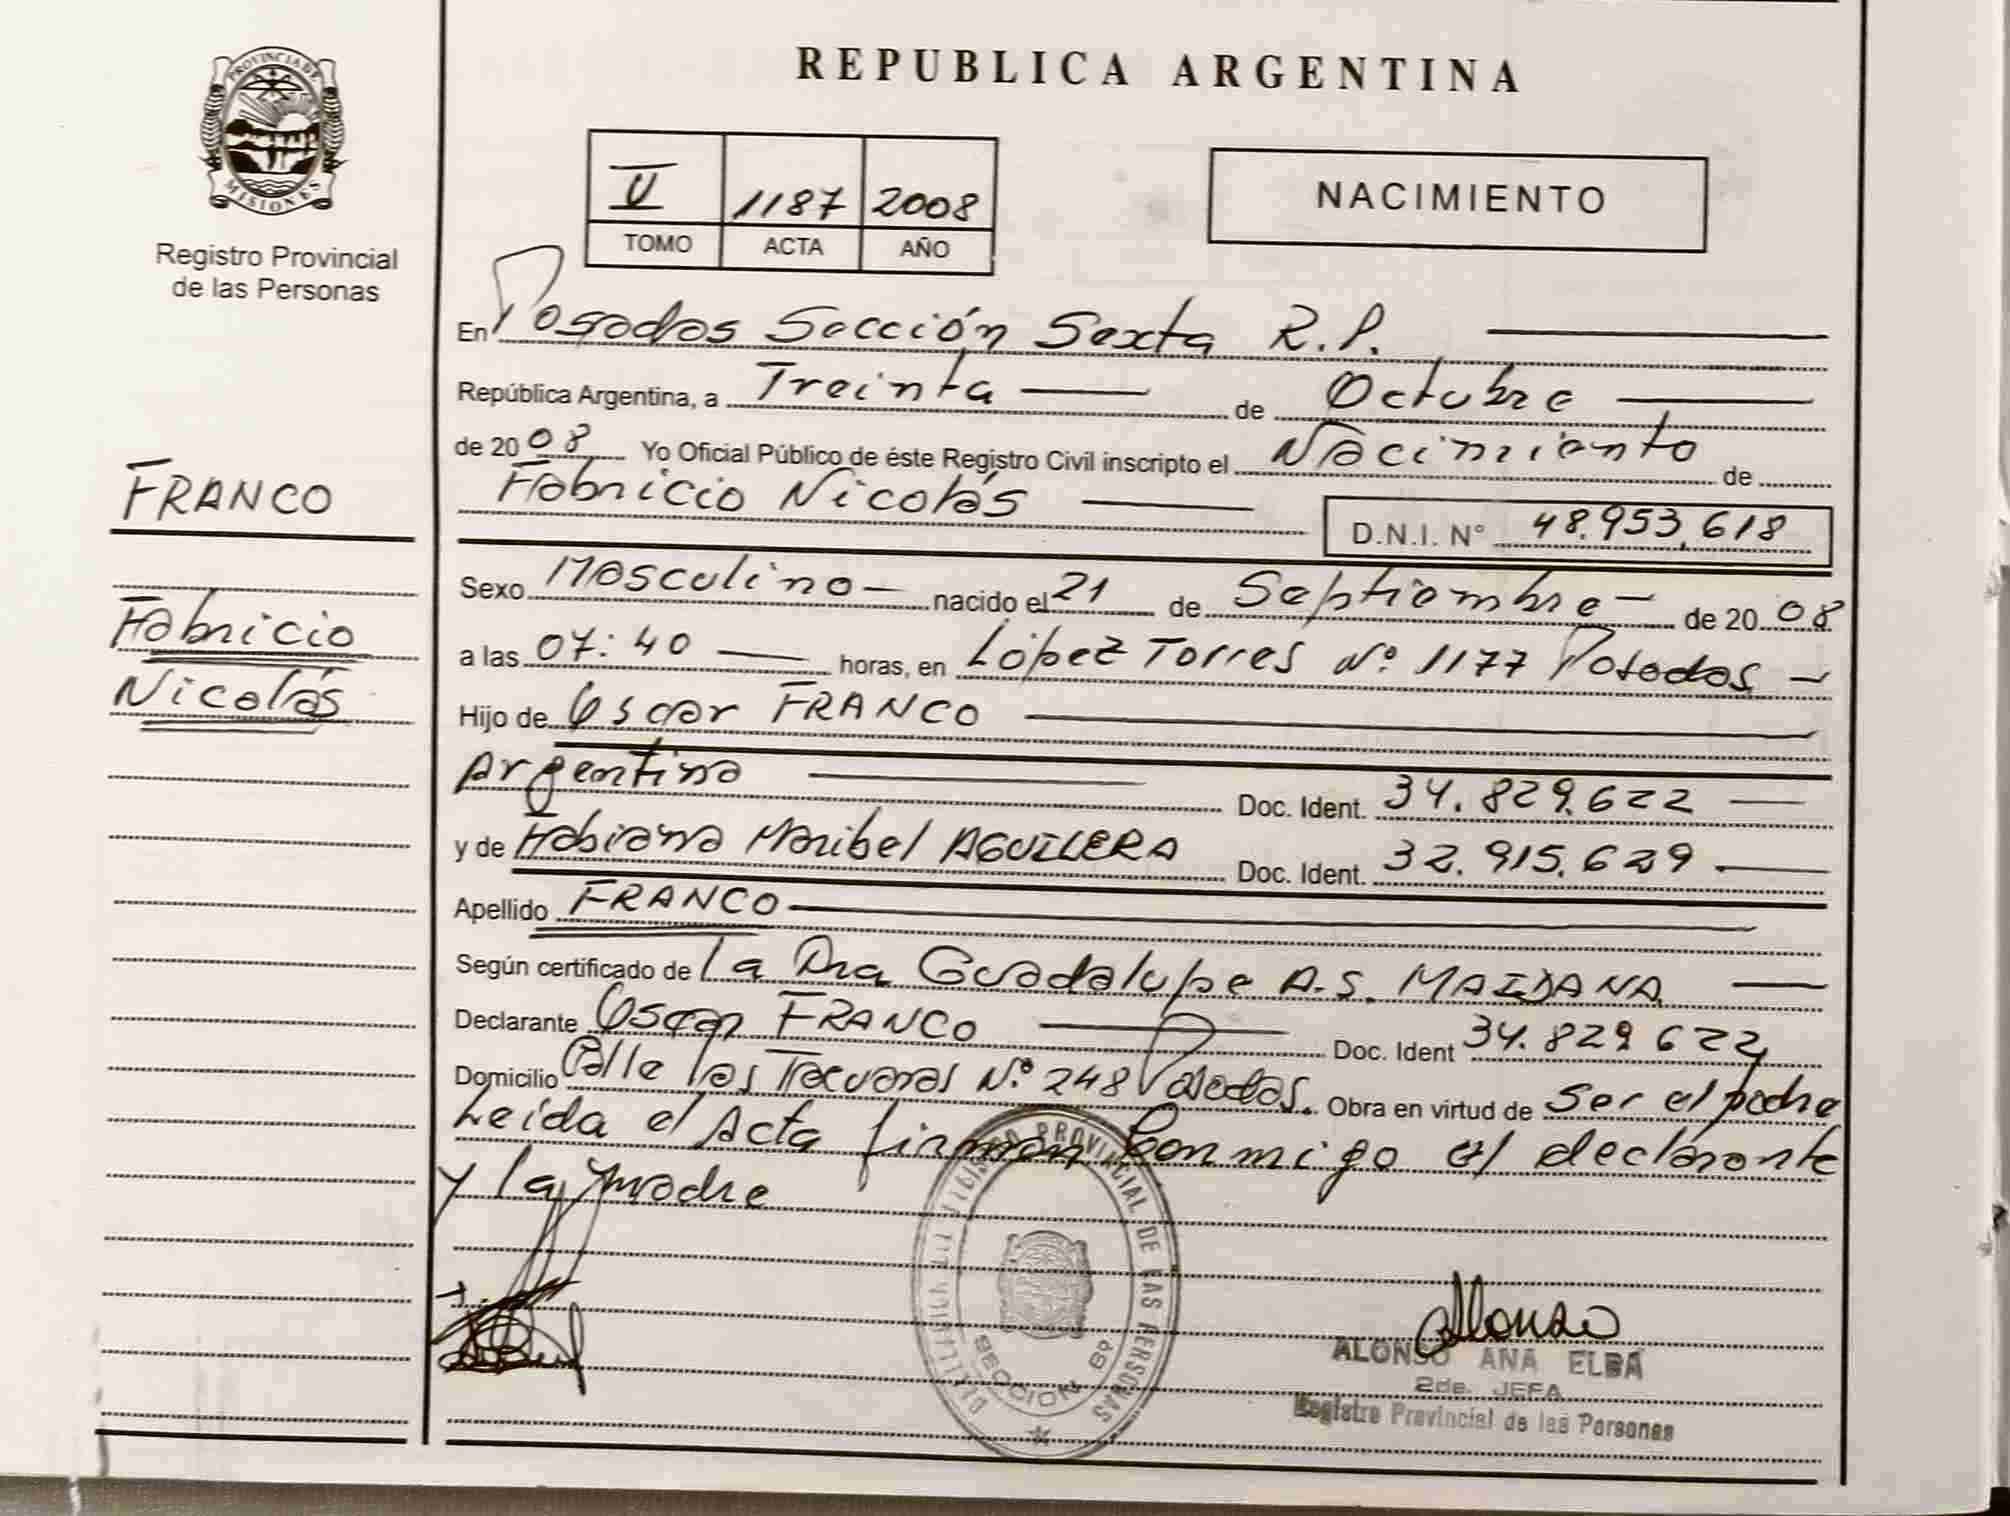 PROVINCIA DE
MISIONES
Registro Provincial
de las Personas
FRANCO
Fabricio
Nicolás
REPUBLICA ARGENTINA
V 1187 2008
TOMO ACTA AÑO
NACIMIENTO
En Posadas Sección Sexta R.P.
República Argentina, a Treinta de Octubre
de 2008 Yo Oficial Público de éste Registro Civil inscripto el Nacimiento de
Fabricio Nicolás D.N.I. N° 48.953.618
Sexo Masculino nacido el 21 de Septiembre de 2008
a las 07:40 horas, en López Torres Nº 1177 Posadas
Hijo de Oscar FRANCO
Argentino Doc. Ident. 34.829.622
y de Fabiana Maribel AGUILERA Doc. Ident. 32.915.629
Apellido FRANCO
Según certificado de La Dra Guadalupe A.S. MAIDANA
Declarante Oscar FRANCO Doc. Ident 34.829.622
Domicilio Calle Las Tacuaras Nº 248 Posadas. Obra en virtud de Ser el padre
Leída el Acta firman conmigo el declarante
y la madre
PROVINCIAL DE LAS PERSONAS
SECCION 6º
Alonso
ALONSO ANA ELBA
2da. JEFA
Registro Provincial de las Personas